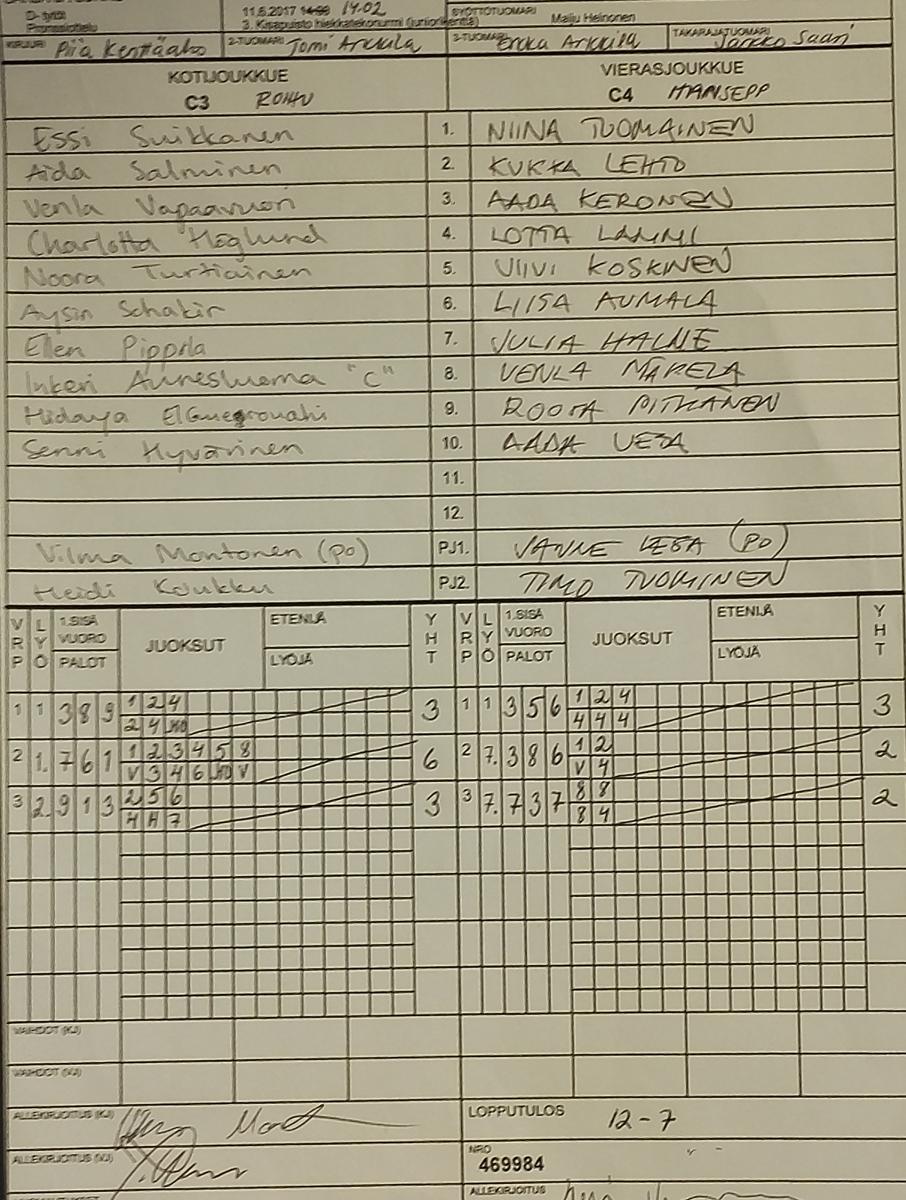 D-tytöt 11.6.2017 14.02 SYÖTTÖTUOMARI Maiju Heinonen
3. Kisapuisto hiekkatekonurmi (juniorikenttä)
KIRJURI Piia Kenttäaho 2-TUOMARI Tomi Arkkila 3-TUOMARI Erkka Arkkila TAKARAJATUOMARI Jarkko Saari
KOTIJOUKKUE VIERASJOUKKUE
C3 ROIHU C4 MANSEPP
Essi Suikkanen 1. NIINA TUOMAINEN
Aida Salminen 2. KUKKA LEHTO
Venla Vapaavuori 3. AADA KERONEN
Charlotta Höglund 4. LOTTA LAMMI
Noora Turtiainen 5. VIIVI KOSKINEN
Aysin Schakir 6. LIISA AUMALA
Ellen Pippola 7. JULIA HALME
Inkeri Auresluoma "C" 8. VENLA MÄKELÄ
Hidaya 9. ROOSA PITKÄNEN
Senni Hyvärinen 10. AADA UEDA
11.
12.
Vilma Montonen (PO) PJ1. LESA (PO)
Heidi Koukku PJ2. TIMO TUOMINEN
VRP LYÖ 1.SISÄ VUORO PALOT JUOKSUT ETENIJÄ LYÖJÄ YHT VRP LYÖ 1.SISÄ VUORO PALOT JUOKSUT ETENIJÄ LYÖJÄ YHT
1 1 3 8 9 1 2 4 3 1 1 3 5 6 1 2 4 3
2 4 4 4 4
2 1. 7 6 1 1 2 3 4 5 8 6 2 7. 3 8 6 1 2 2
V 3 4 6 V V 4
3 2. 9 1 3 2 5 6 3 3 7. 7 3 7 8 8 2
4 H 7 8 4
VAIHDOT (KJ)
VAIHDOT (VJ)
ALLEKIRJOITUS (KJ) LOPPUTULOS 12-7
ALLEKIRJOITUS (VJ) NRO
469984
ALLEKIRJOITUS